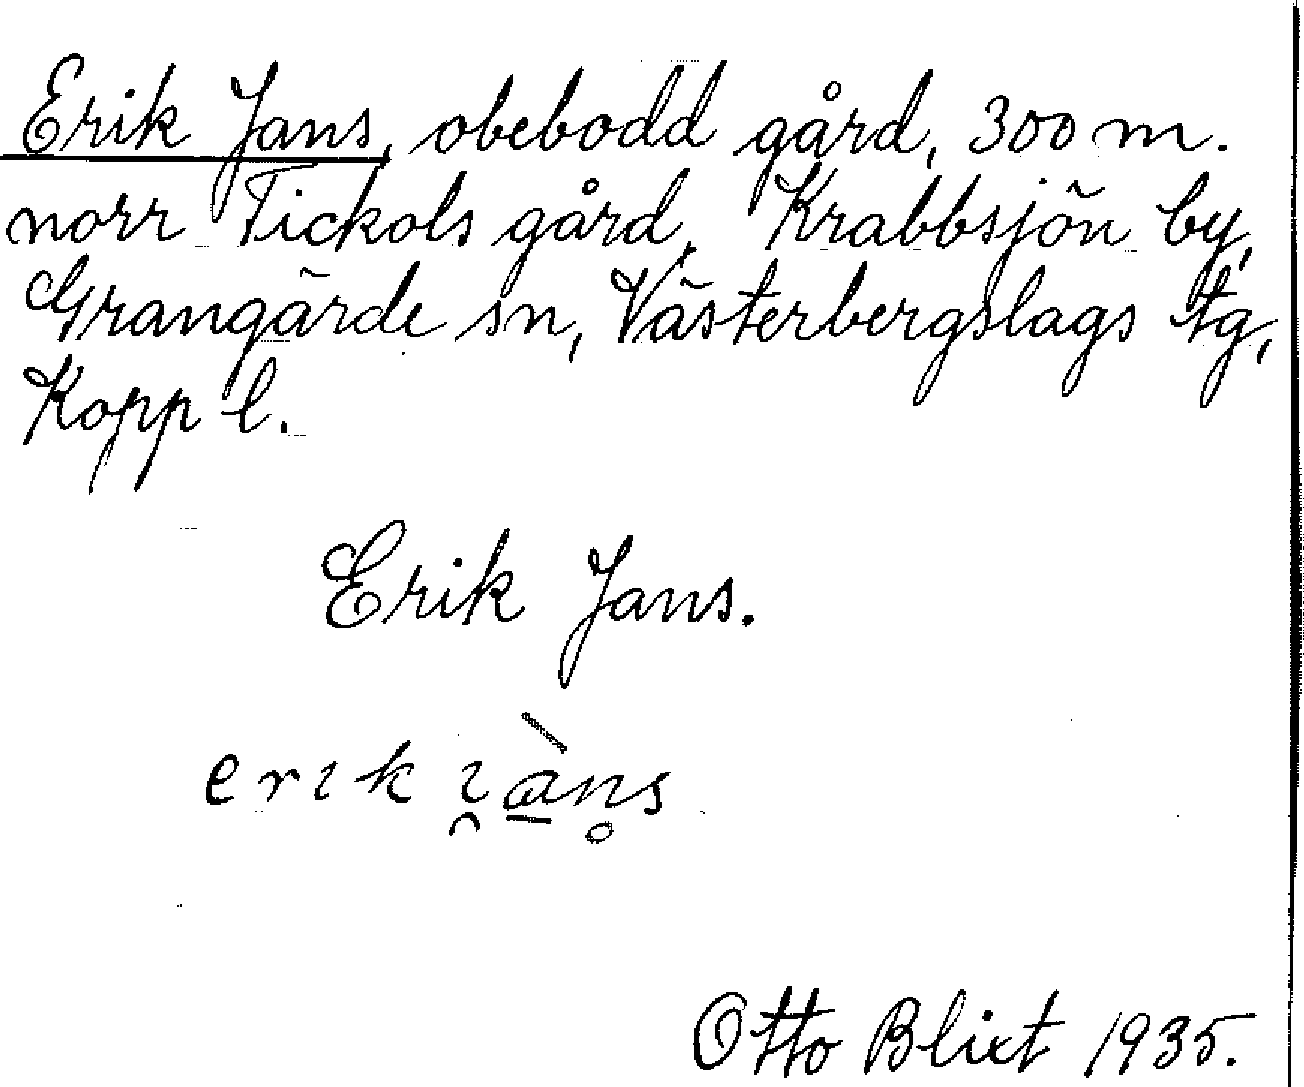 Erik Jans, obebodd gård, 300 m.
norr Tickols gård. Krabbsjön by,
Grangärde sn, Västerbergslags tg,
Kopp l.
Erik Jans.
erık ı̯à̠n̥s
Otto Blixt 1935.